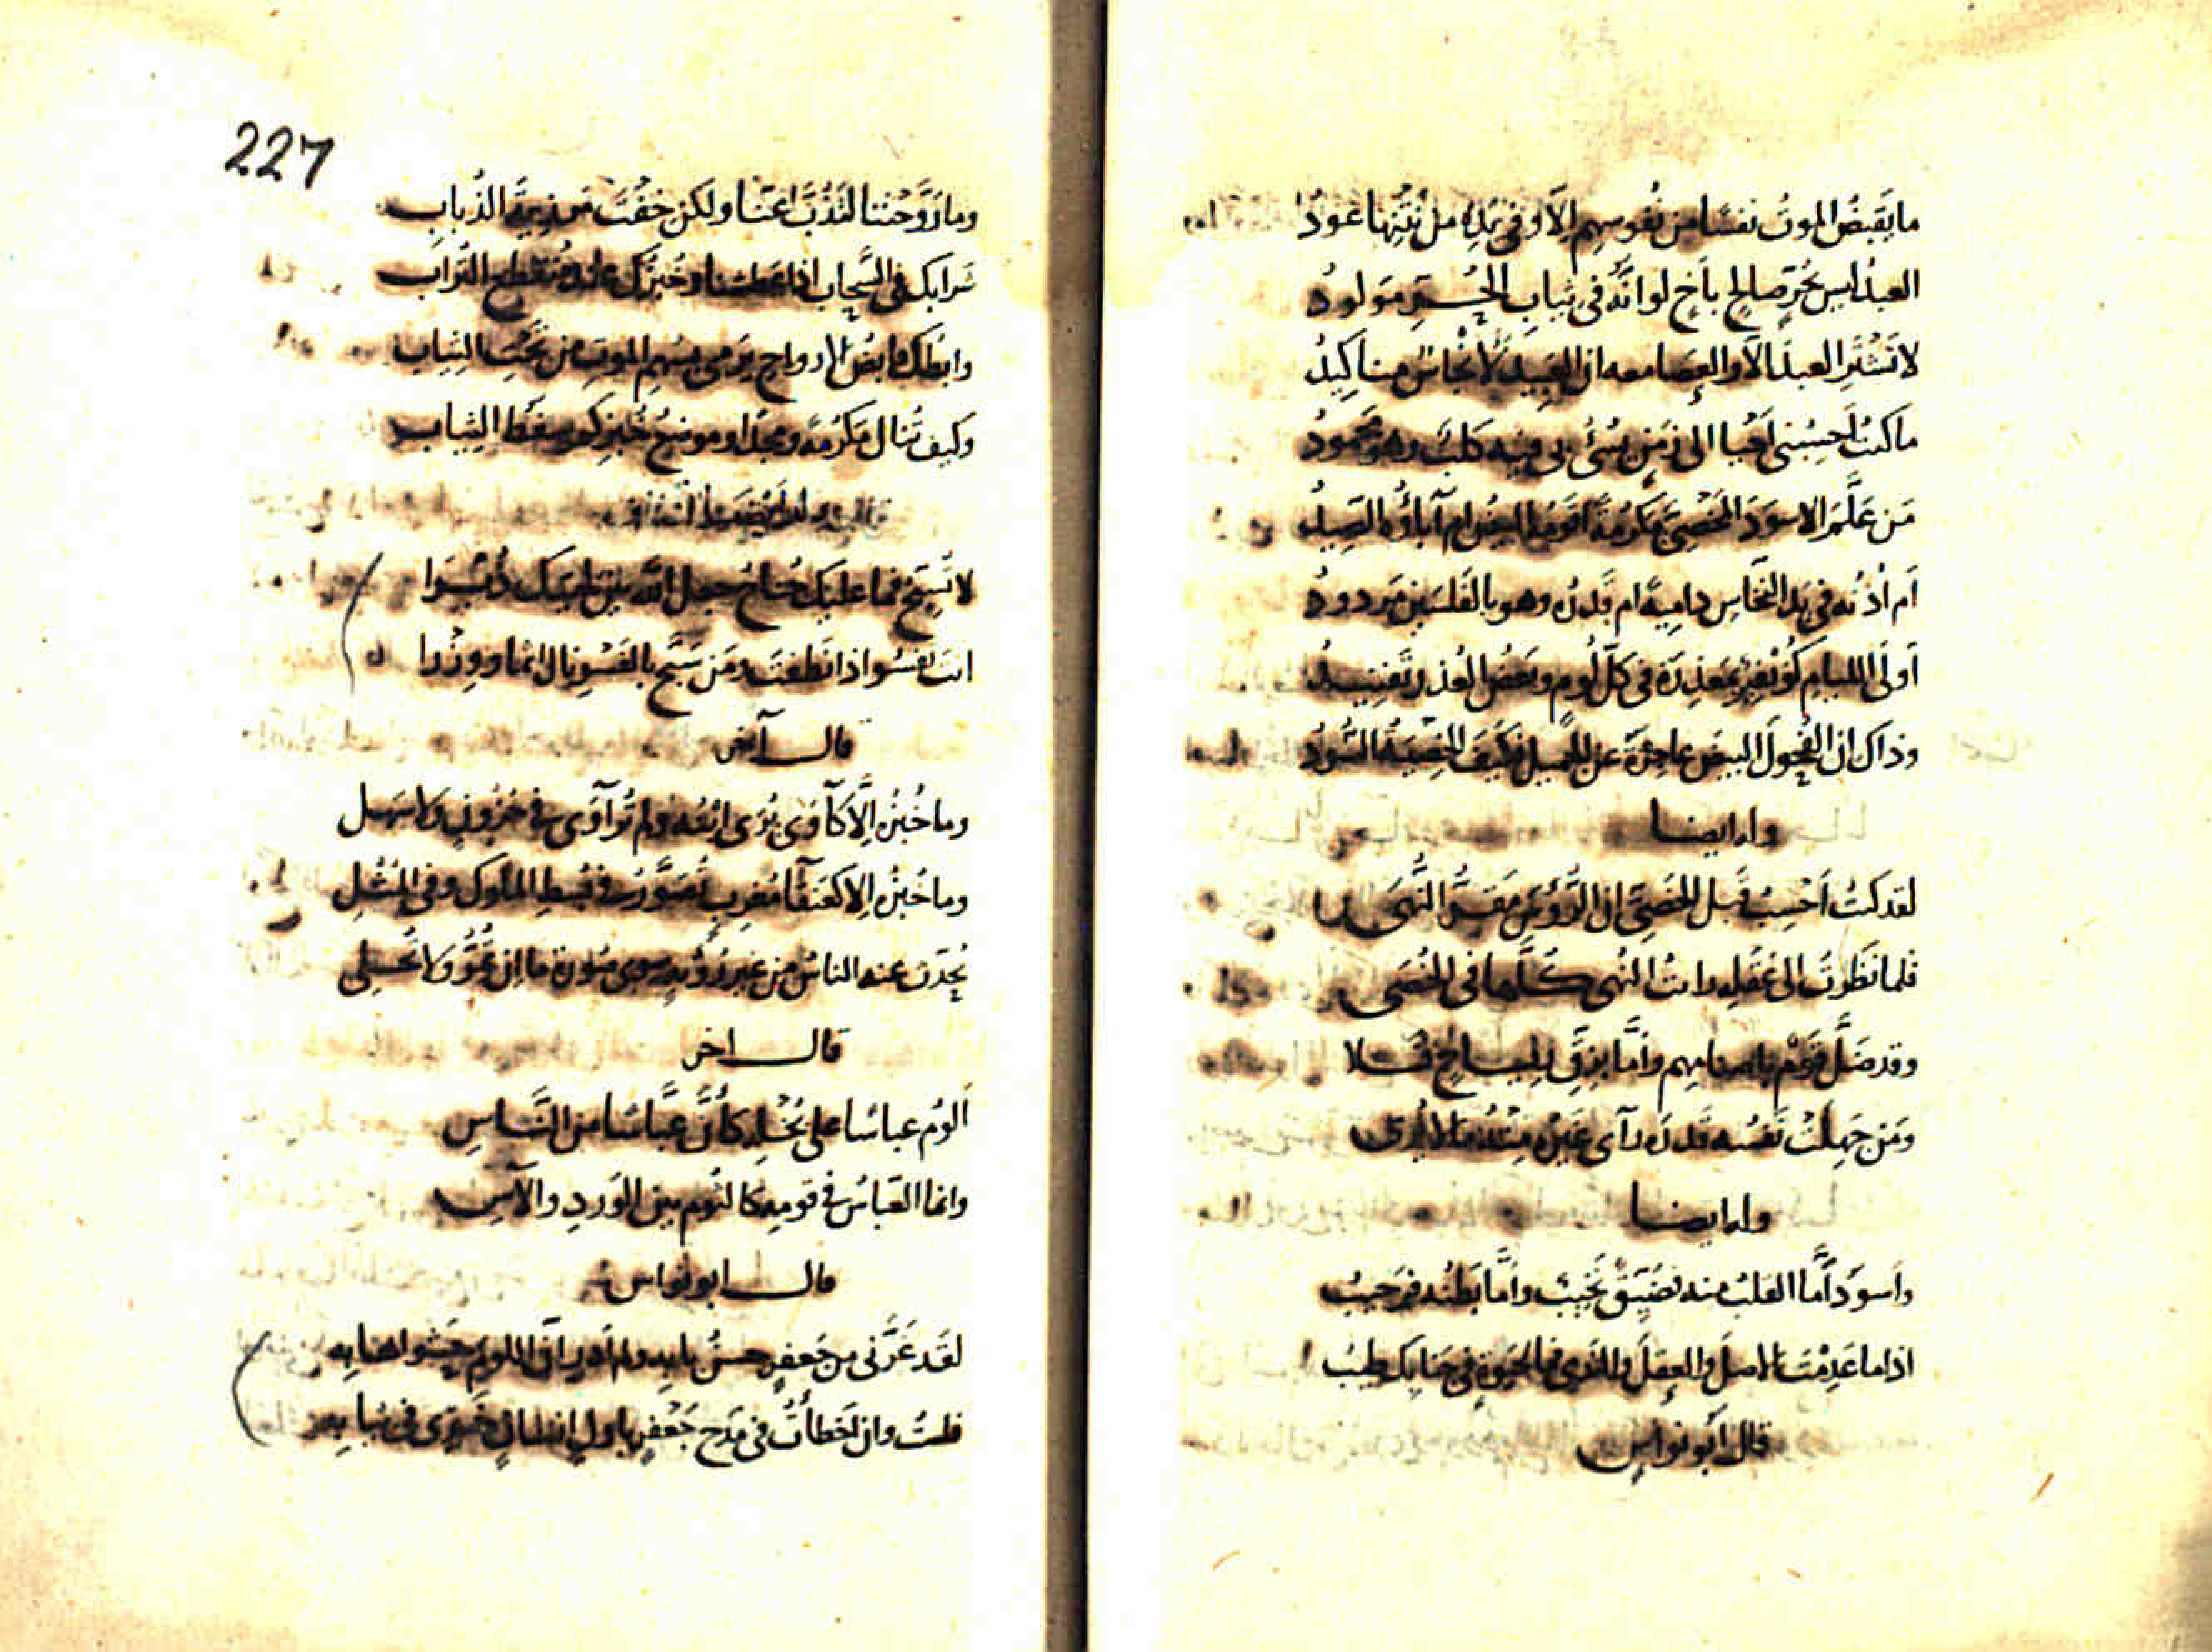 ما يَقبِضُ الموتُ نفسًا من نُفوسِهِم اِلّا وفى يَدِهِ من نَتْنِها عُودُ
العبدُ ليسَ لِحُرٍّ صالحٍ بأخٍ لو انَّه فى ثيابِ الحُرِّ مَولودُ
لا تَشْتَرِ العبدَ الّا والعَصا معه ان العَبيدَ لَأنجاسٌ مناكِيدُ
ما كنتُ أحسِبُنى أحْيا الى زَمَنٍ يُسئُ بى فيه كلبٌ وهو محمودُ
مَن عَلَّمَ الاسوَدَ المَخصِىَّ مَكرُمَةً أقَومُه البِيضُ ام آباؤُه الصِيدُ
أم أُذْنُه فى يَدِ النخّاسِ دامِيةً ام قَدرُه وهو بالفَلسَينِ مَردودُ
أَولَى اللِيامِ كُوَيْفِيرٌ بمَعذِرَةٍ فى كلِّ لُومٍ وبَعضُ العُذرِ تَفنِيدُ
وذاك ان الفُحولَ البيضَ عاجِزَةٌ عن الجميلِ فكَيفَ الخِصْيَةُ السُّودُ
وله ايضا
لقد كنتُ أَحْسِبُ قبلَ الخَصِىِّ ان الرُّؤُسَ مَقَرُّ النُّهَى
فلما نَظَرتُ الى عَقْلِه رايتُ النُهى كُلَّها فى الخُصَى
وقد ضَلَّ قَوْمٌ باصنامِهِم وأمَّا بِزِقِّ رِياحٍ فَلا
ومَن جَهِلَتْ نَفسُه قَدرَه رَآى غَيرُه مِنْهُ ما لا يُرى
وله ايضا
وأسوَدَ أمَّا القلبُ منه فضَيِّقٌ نَخِيبٌ وأمَّا بَطنُه فرَحِيبُ
اذا ما عَدِمْتَ الاصلَ والعقلَ والنَدى فما لحَيوةٍ فى جنابِك طِيبُ
قال أبو نواس
227
وما رَوَّحْتَنا لتَذُبَّ عَنّا ولكن خِفْتَ مَرزِيَةَ الذُبابِ
شَرابُك فى السَّحابِ اذا عَطِشنا وخُبزُك عند مُنقَطَعِ التُرابِ
وكيف تَنال مَكرُمةً ومَجدًا
لا تُسَبِّحْ فما عليك جُناحٌ جعل الله بين لحيَيك دُبْرَا
انت تَفسُو اذا نَطَقتَ ومَن سَبَّحَ بالفَسْوِ نال اثما ووِزْرا
قال آخر
وما خُبزُه إِلّا كآوَى يُرَى ابْنُه ولم تُرَ آوَى فى حُزُونٍ ولا سَهلِ
وما خُبزُه إِلا كعَنقآءَ مُغرِبٍ تُصَوَّرُ فى بُسطِ الملوكِ وفى المَثْلِ
يُحدِّث عنه الناسُ من غيرِ رُؤْيةٍ سِوى صُورةٍ ما ان تُمِرُّ ولا تُحْلِى
قال اخر
أَلومُ عباسًا على بُخْلِه كأنَّ عبَّاسًا من النَّاسِ
وانما العَبّاسُ فى قومِه كالثُومِ بين الوَردِ والآسِ
قال ابو نواس
لقد غَرَّنى من جَعفرٍ حسنُ بابِه ولم أدرِ أنَّ اللومَ حَشْوُ اهابِه
فلستُ وان أخطأتُ فى مَدحِ جَعفرٍ باولِ انسانٍ خَرِى فى ثيابِه